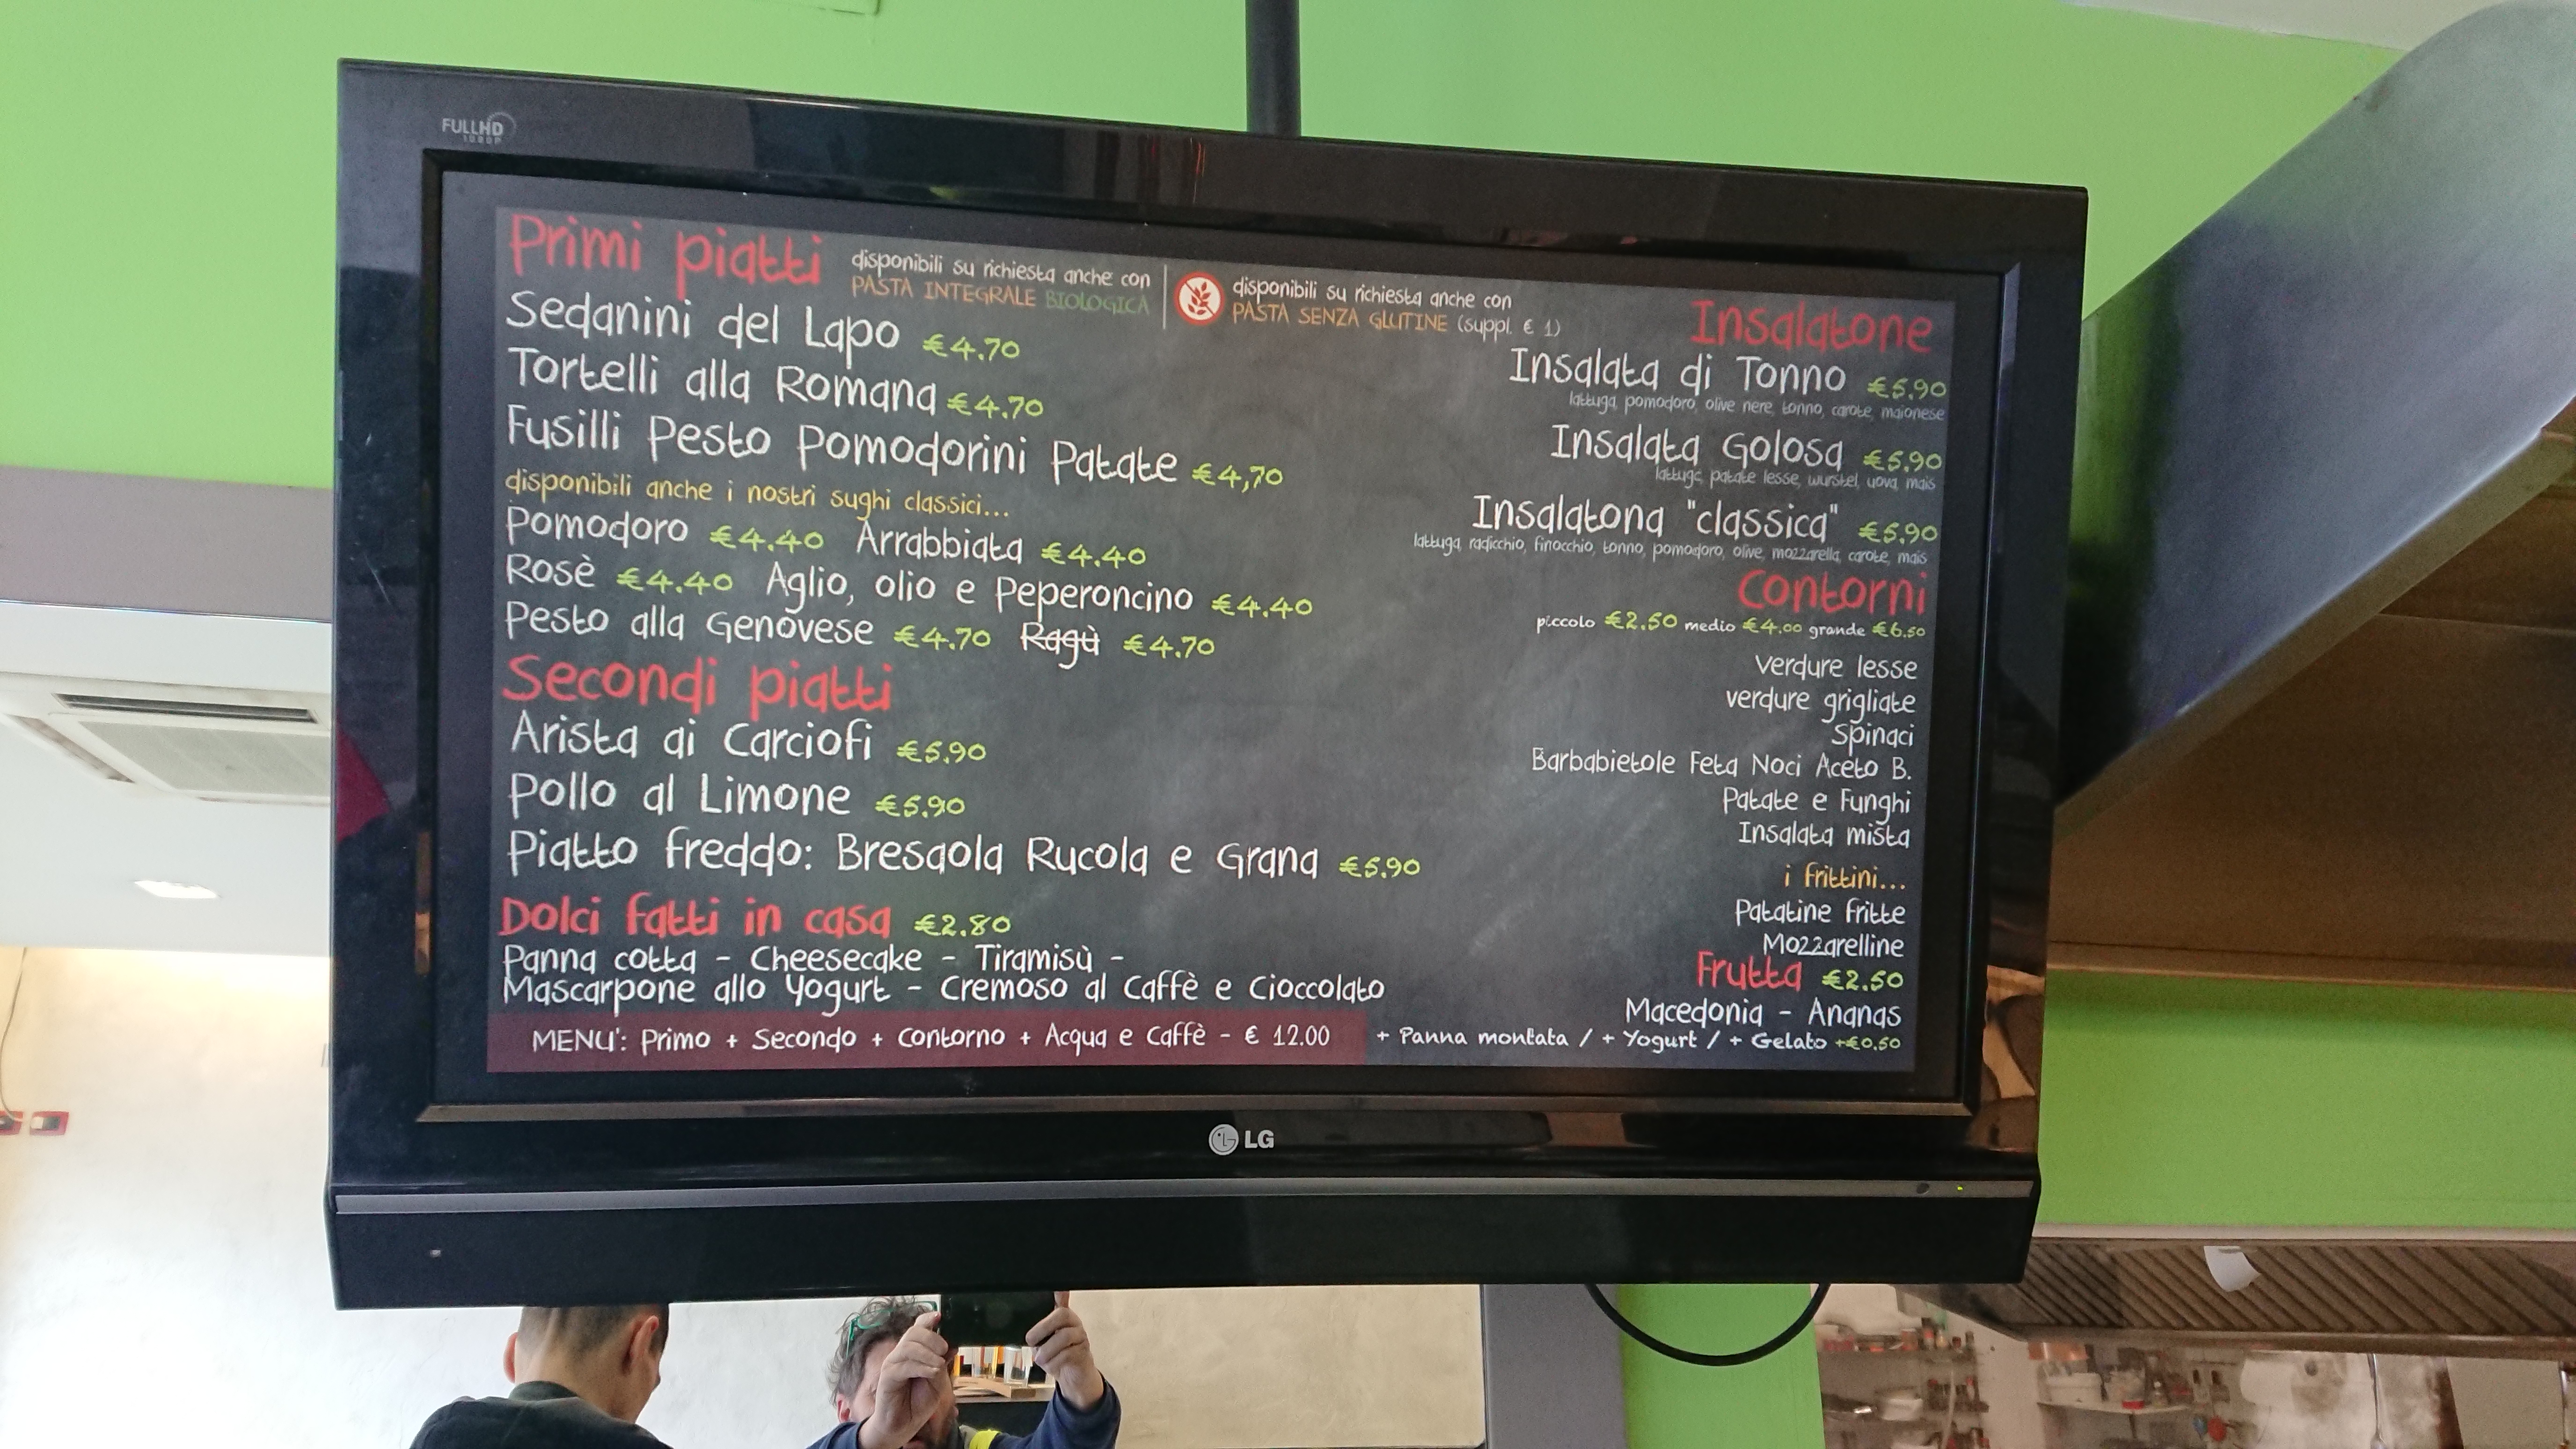 FULLHD
1080P
Primi piatti
disponibili su richiesta anche con
PASTA INTEGRALE BIOLOGICA
disponibili su richiesta anche con
PASTA SENZA GLUTINE (suppl. € 1)
Sedanini del Lapo €4.70
Tortelli alla Romana €4.70
Fusilli Pesto Pomodorini Patate €4,70
disponibili anche i nostri sughi classici...
Pomodoro €4.40 Arrabbiata €4.40
Rosè €4.40 Aglio, olio e Peperoncino €4.40
Pesto alla Genovese €4.70 Ragù €4.70
Secondi piatti
Arista ai Carciofi €5.90
Pollo al Limone €5.90
Piatto freddo: Bresaola Rucola e Grana €5.90
Dolci fatti in casa €2.80
Panna cotta - Cheesecake - Tiramisù -
Mascarpone allo Yogurt - Cremoso al Caffè e Cioccolato
MENU': Primo + Secondo + Contorno + Acqua e Caffè - € 12.00
Insalatone
Insalata di Tonno €5.90
lattuga, pomodoro, olive nere, tonno, carote, maionese
Insalata Golosa €5.90
lattuga, patate lesse, wurstel, uova, mais
Insalatona "classica" €5.90
lattuga, radicchio, finocchio, tonno, pomodoro, olive, mozzarella, carote, mais
Contorni
piccolo €2.50 medio €4.00 grande €6.50
verdure lesse
verdure grigliate
Spinaci
Barbabietole Feta Noci Aceto B.
Patate e Funghi
Insalata mista
i frittini...
Patatine fritte
Mozzarelline
Frutta €2.50
Macedonia - Ananas
+ Panna montata / + Yogurt / + Gelato +€0.50
LG